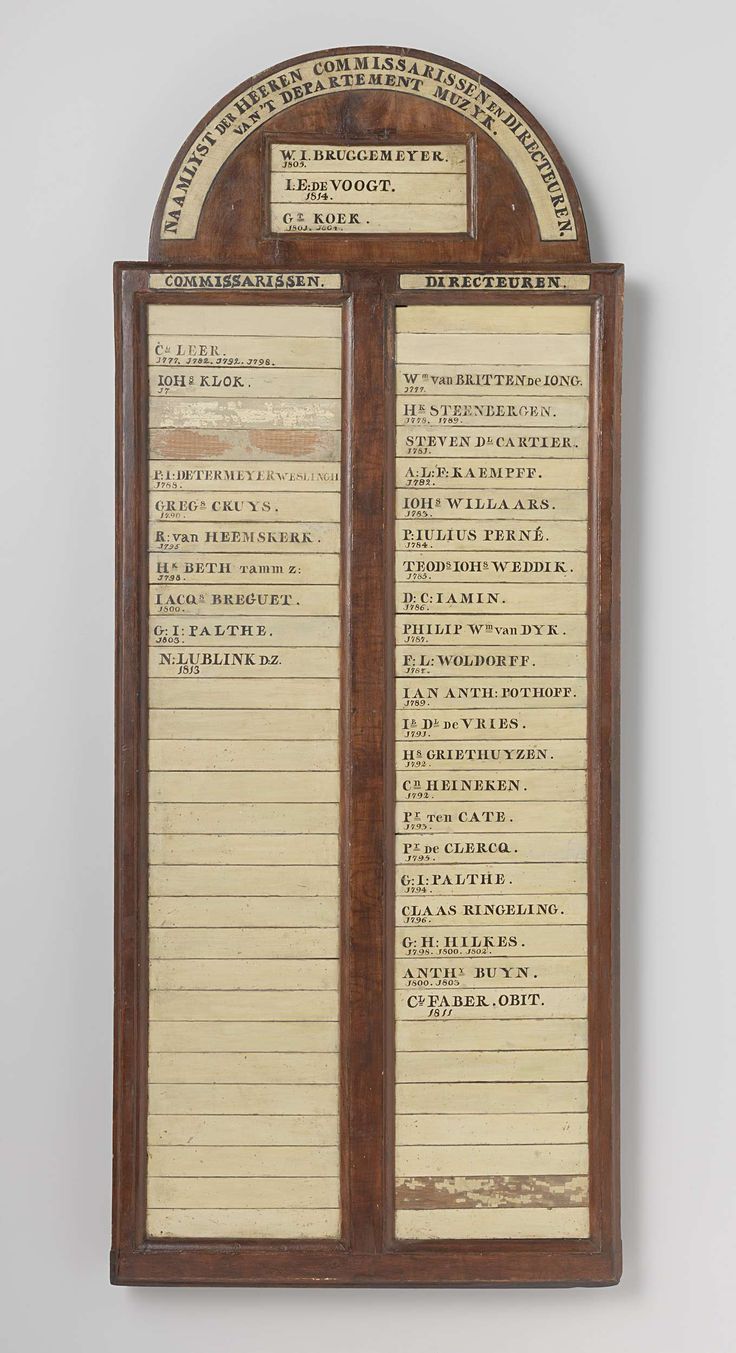 NAAMLYST DER HEEREN COMMISSARISSEN EN DIRECTEUREN.
VAN'T DEPARTEMENT MUZYK.
W. I. BRUGGEMEYER.
1805.
I. E: DE VOOGT.
1814.
Gt KOEK.
1803. 1804.
COMMISSARISSEN.
Cs LEER.
1777. 1782. 1792. 1798.
IOHs KLOK.
17
P: I: DETERMEYER WESLINGH
1788.
GREGs CRUYS.
1790.
R: van HEEMSKERK.
1795
Hk BETH tamm z:
1798.
IACQs BREGUET.
1800.
G: I: PALTHE.
1803.
N: LUBLINK D.Z.
1813
DIRECTEUREN.
Wm van BRITTEN De IONG.
1777.
Hk STEENBERGEN.
1778. 1789.
STEVEN Dl CARTIER.
1781.
A: L: F: KAEMPFF.
1782.
IOHs WILLAARS.
1783.
P: IULIUS PERNÉ.
1784.
TEODs IOHs WEDDIK.
1785.
D: C: IAMIN.
1786.
PHILIP Wm van DYK.
1787.
F: L: WOLDORFF.
IAN ANTH: POTHOFF.
1789.
Ib Dl De VRIES.
1791.
Hs GRIETHUYZEN.
1792.
Cn HEINEKEN.
1792.
Pr ten CATE.
1793.
Pr de CLERCQ.
1795.
G: I: PALTHE.
1794.
CLAAS RINGELING.
1796.
G: H: HILKES.
1798. 1800. 1802.
ANTHy BUYN.
1800. 1803
Cl FABER. OBIT.
1811